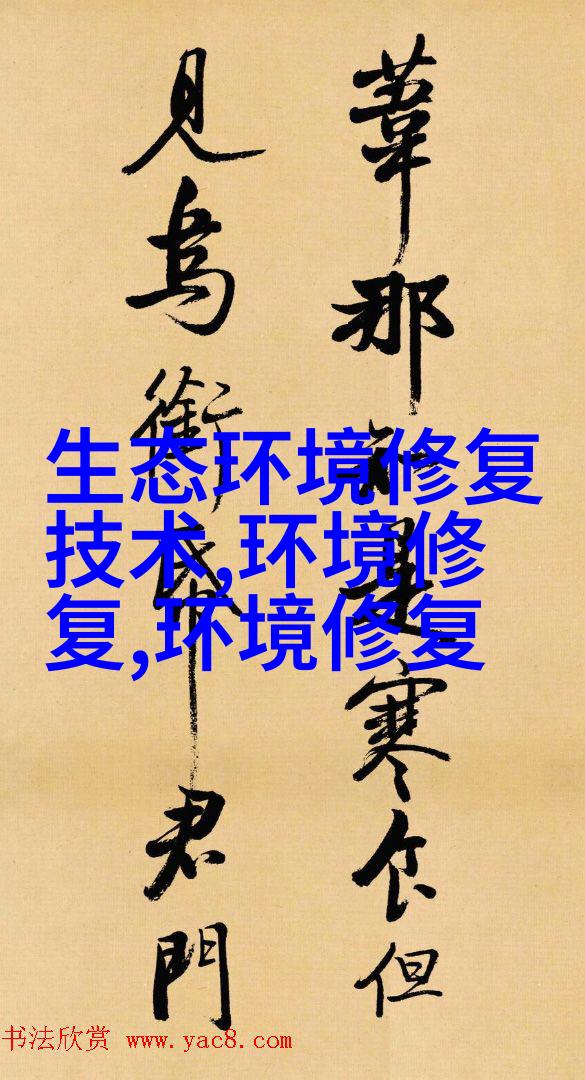 葦那知是寒食但
見烏銜帋君門
生态环境修复
技术,环境修
复,环境修复
书法欣赏 www.yac8.com